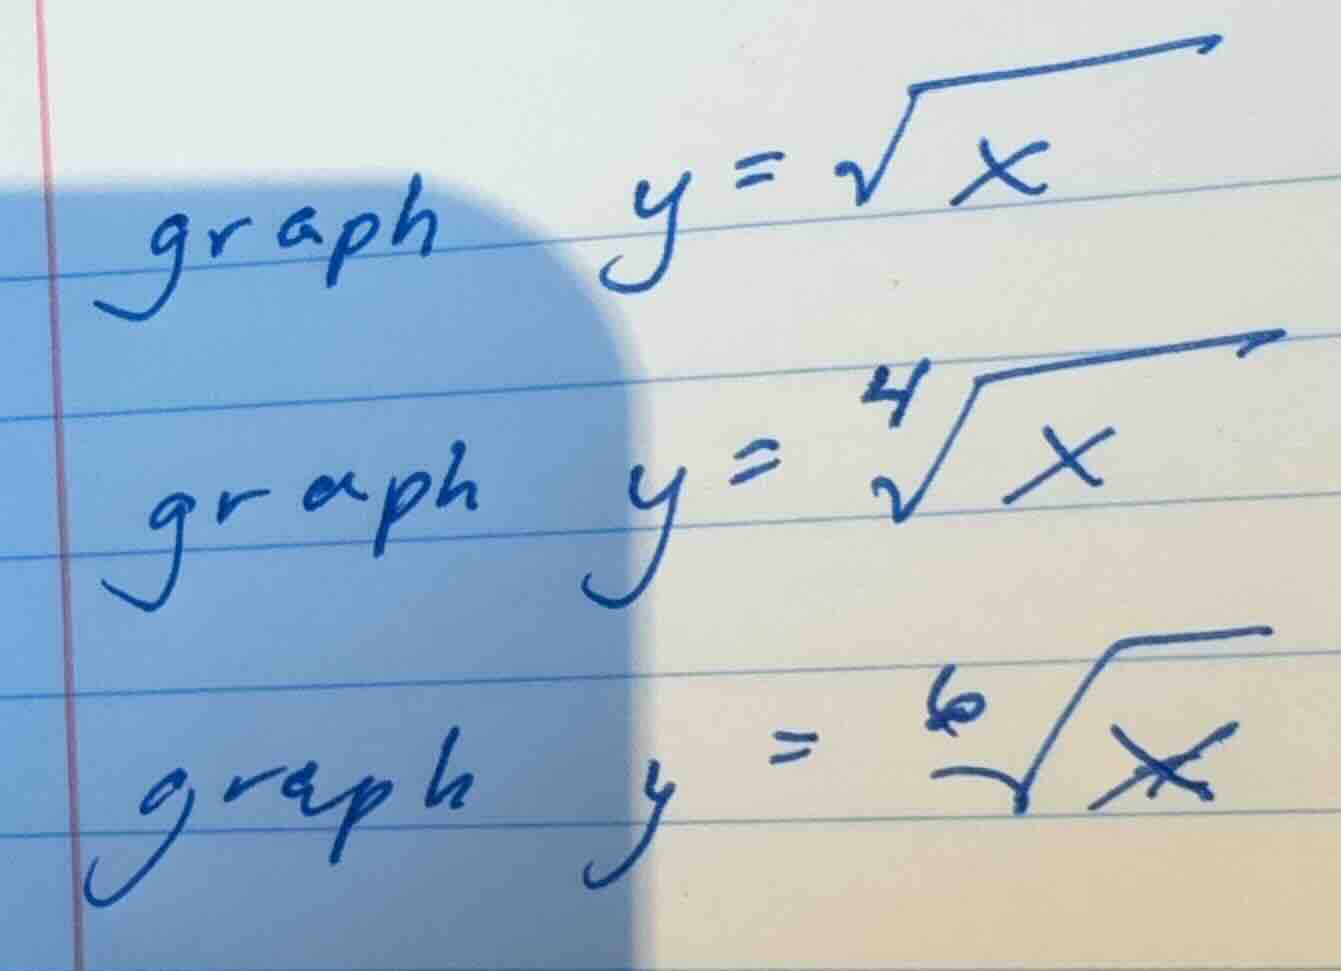 graph y = √x
graph y = ⁴√x
graph y = ⁶√x